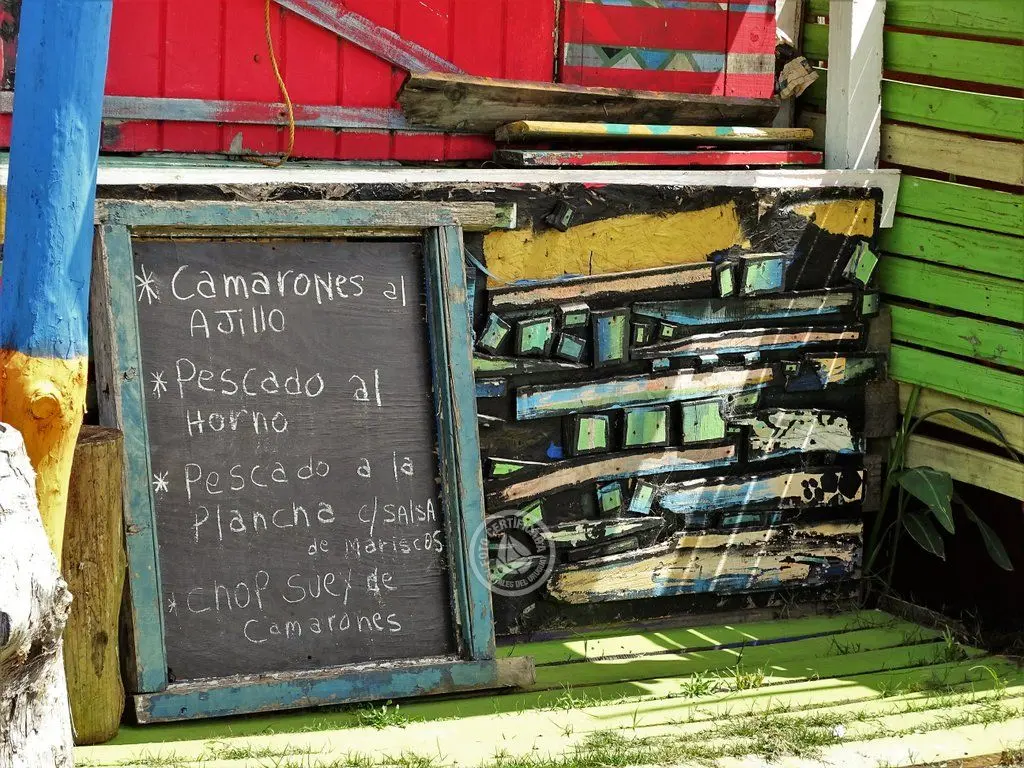 * Camarones al
Ajillo
* Pescado al
Horno
* Pescado a la
Plancha c/SALSA
de Mariscos
* CHOP SUEY de
Camarones